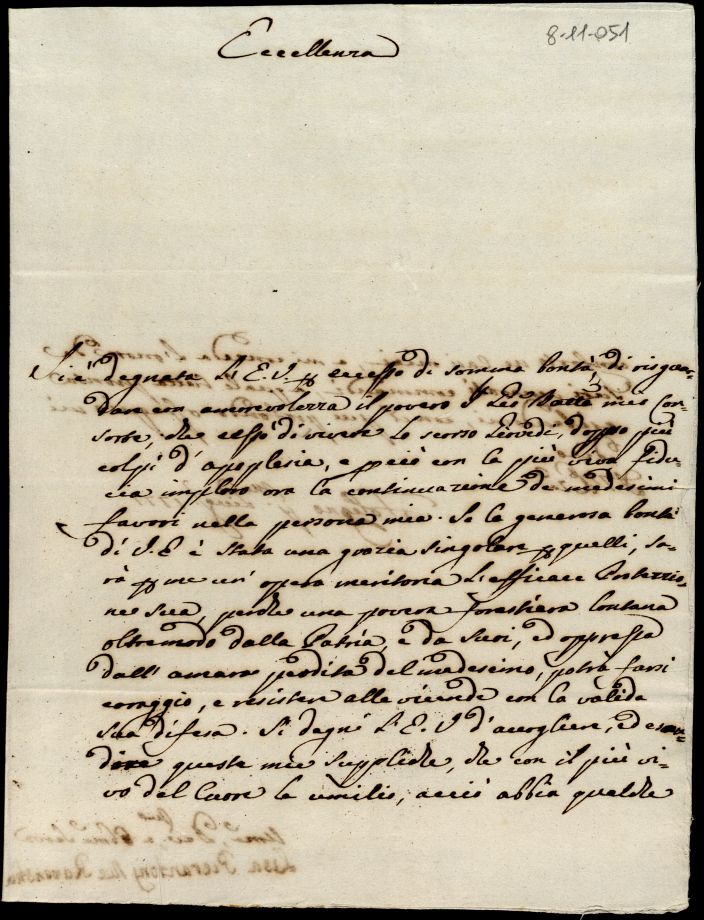 Eccellenza
8-11-051
Si è degnata L'E. V. ꝑ eccesso di somma bontà, di risguar-
dare con amorevolezza il povero mio Con-
sorte, che cessò di vivere lo scorso Giovedì, doppo più
colpi d'apoplesia, e perciò con la più viva fidu-
cia imploro ora la continuazione de medesimi
favori nella persona mia. Se la generosa bontà
di V. E. è stata una grazia singolare ꝑ quelli, sa-
rà ꝑ me un' opera meritoria L'efficace Protezzio-
ne sua, perche una povera forestiera lontana
oltremodo dalla Patria, e da suoi, ed oppressa
dall' amara perdita del medesimo, potrà farsi
coraggio, e resistere alle vicende con la valida
sua difesa. Si degni L'E. V. d'accogliere, ed esau-
dire queste mie suppliche, che con il più vi-
vo del Cuore le umilio, acciò abbia qualche